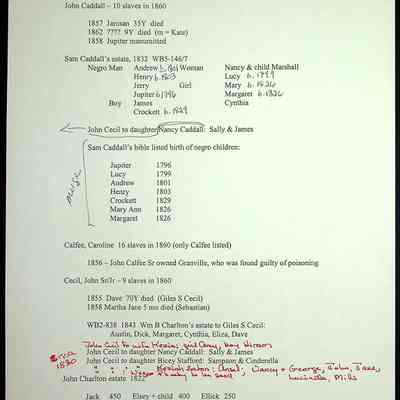 John Caddall – 10 slaves in 1860
1857 Jamsan 35Y died
1862 ???? 9Y died (m = Kate)
1858 Jupiter manumitted
Sam Caddall's estate, 1832 WB5-146/7
Negro Man Andrew b. 1801 Woman Nancy & child Marshall
Henry b. 1803 Lucy b. 1799
Jerry Girl Mary b. 1826
Jupiter b 1796 Margaret b. 1826
Boy James Cynthia
Crockett b. 1829
John Cecil to daughter Nancy Caddall: Sally & James
Sam Caddall's bible listed birth of negro children:
Jupiter 1796
Lucy 1799
Andrew 1801
Henry 1803
Crockett 1829
Mary Ann 1826
Margaret 1826
Calfee, Caroline 16 slaves in 1860 (only Calfee listed)
1856 – John Calfee Sr owned Granville, who was found guilty of poisoning
Cecil, John Sr/Jr – 9 slaves in 1860
1855 Dave 70Y died (Giles S Cecil)
1858 Martha Jane 5 mo died (Sebastian)
WB2-838 1843 Wm B Charlton's estate to Giles S Cecil:
Austin, Dick, Margaret, Cynthia, Eliza, Dave
John Cecil to wife Keziah: girl Amy, boy
John Cecil to daughter Nancy Caddall: Sally & James
John Cecil to daughter Bicey Stafford: Sampson & Cinderella
1830
" " " Keziah : , Nancy & George, John, Jane,
to be sold Lucinda, Milly
John Charlton estate 1822
Jack 450 Elsey + child 400 Ellick 250